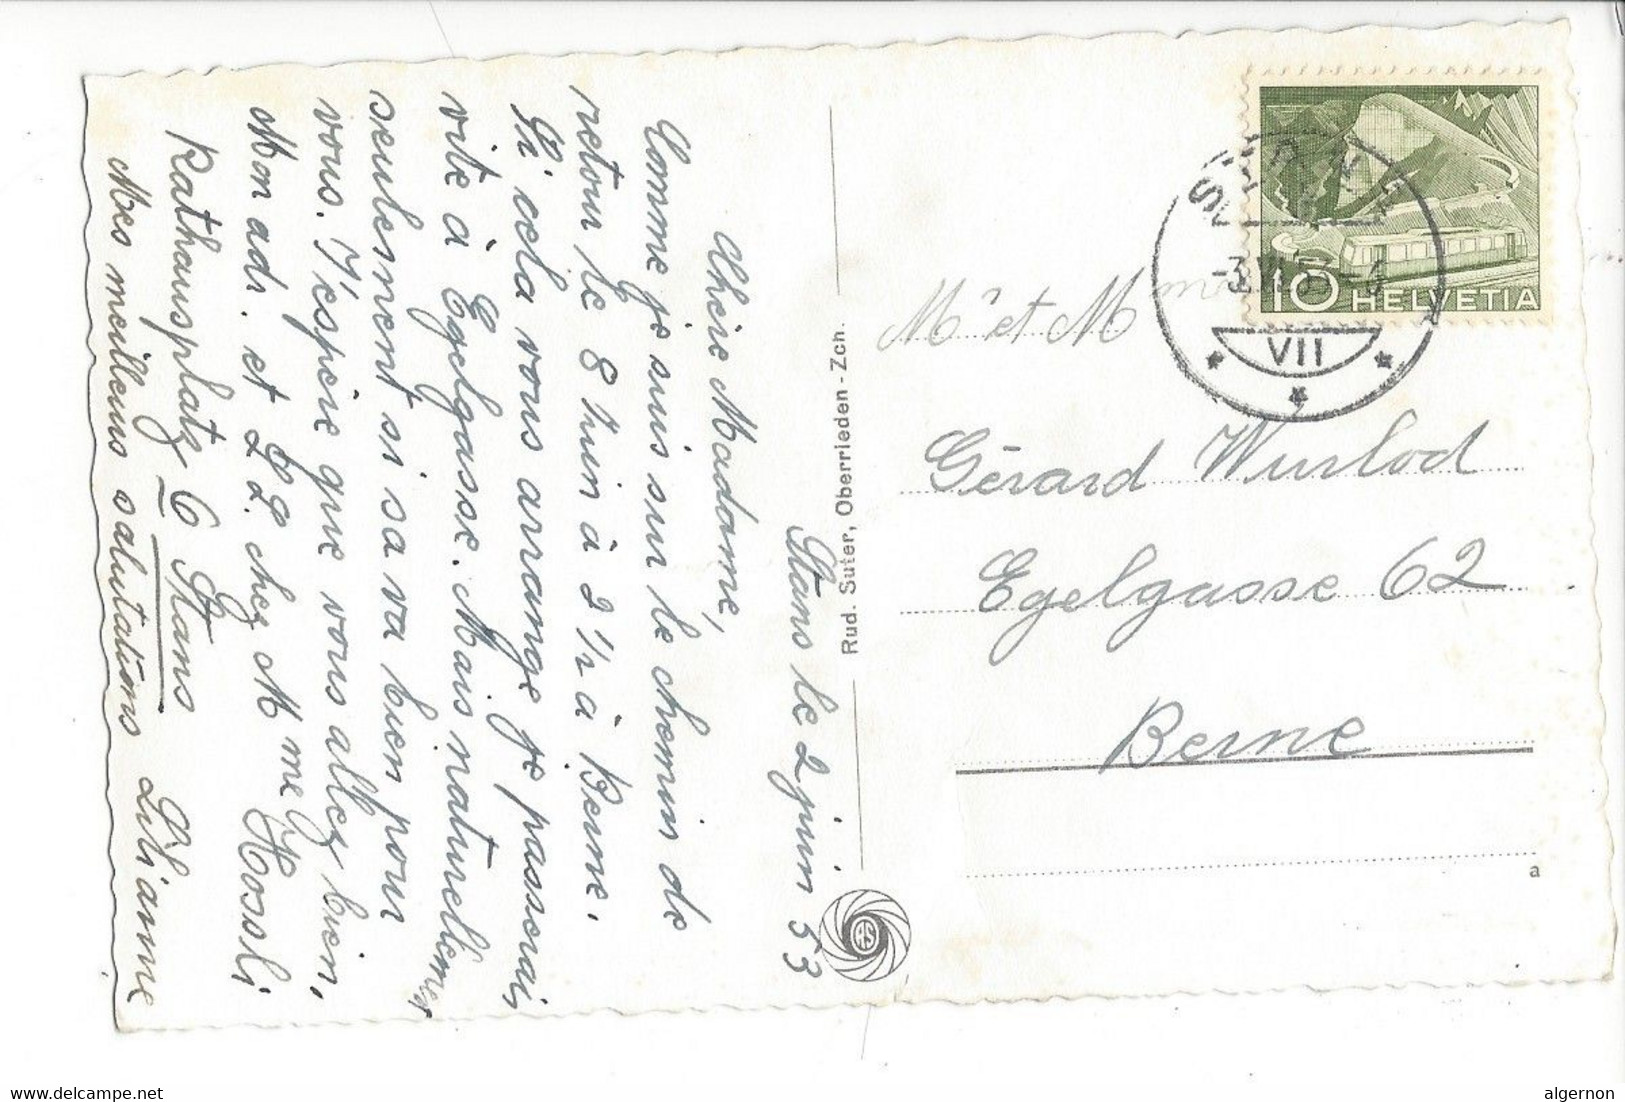 Stans le 2 juin 53
Chère Madame,
Comme je suis sur le chemin de
retour le 8 Juin à 2 1/2 à Berne.
Si cela vous arrange je passerai
vite à Egelgasse. Mais naturellement
seulesment si sa va bien pour
vous. J'espère que vous allez bien,
Mon adr. et chez Mme Hossli
Rathausplatz 6 Stans
Mes meilleurs salutations Lilianne
Rud. Suter, Oberrieden - Zch.
RS
M. et Mme
Gérard Wurlod
Egelgasse 62
Berne
a
10 HELVETIA
VII
delcampe.net
algernon